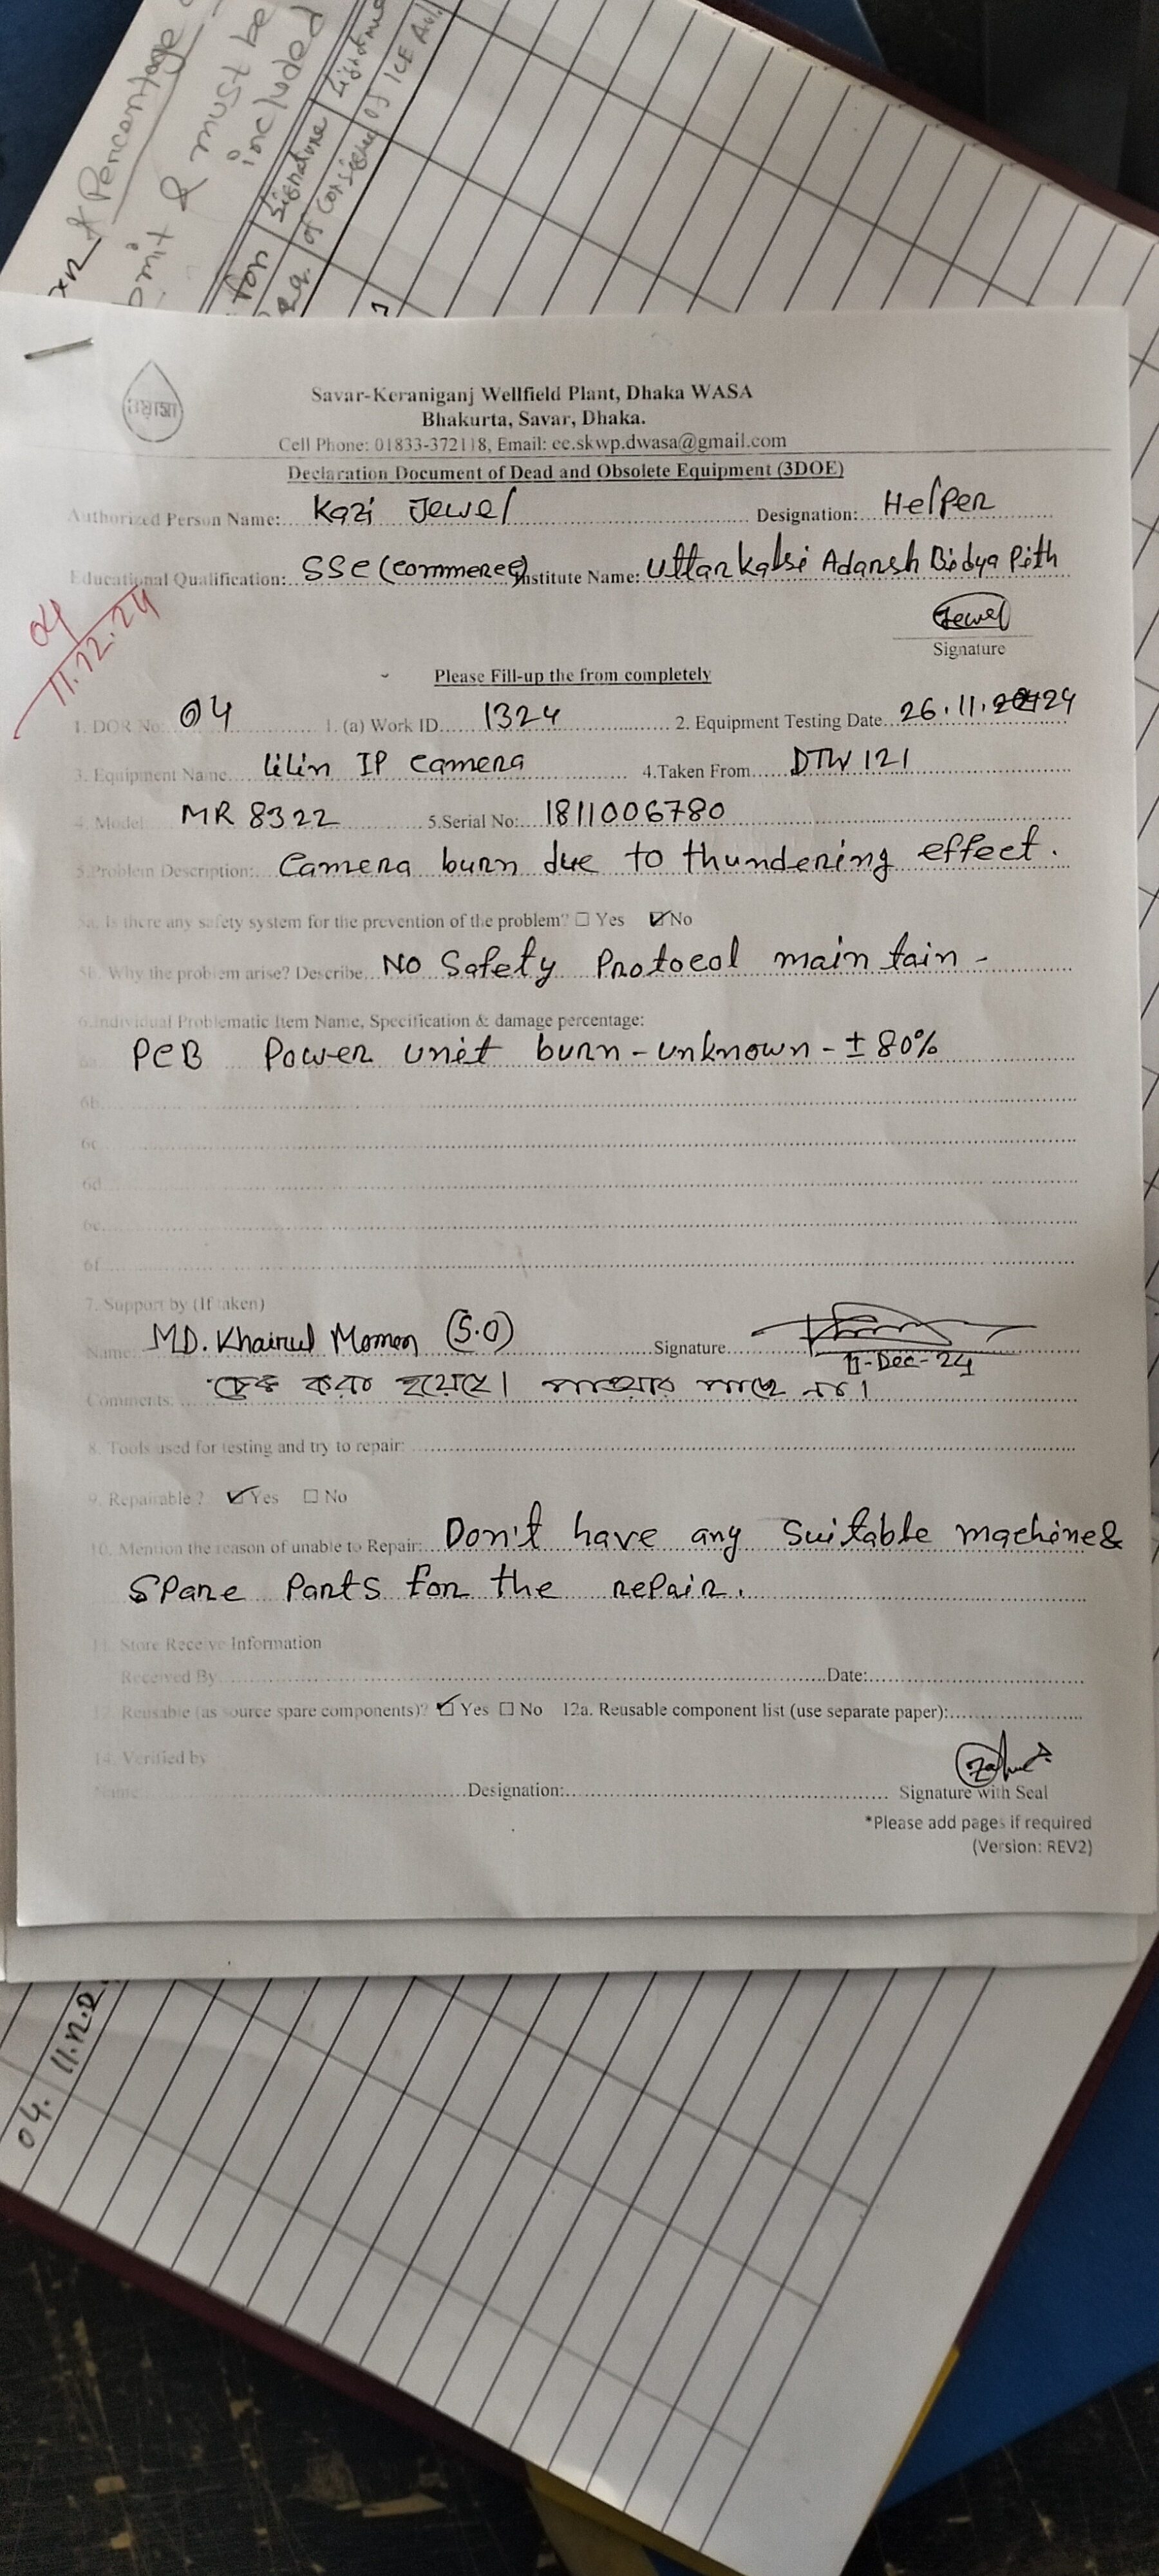 * Percentage
& must be
included
Signature
Signature
for
of Consignee
of ICE Avl.
ওয়াসা
Savar-Keraniganj Wellfield Plant, Dhaka WASA
Bhakurta, Savar, Dhaka.
Cell Phone: 01833-372118, Email: ee.skwp.dwasa@gmail.com
Declaration Document of Dead and Obsolete Equipment (3DOE)
Authorized Person Name: Kazi Jewel Designation: Helper
Educational Qualification: SSC (commerce) Institute Name: Uttarkalsi Adarsh Bidya Pith
04
11.12.24
Jewel
Signature
Please Fill-up the from completely
1. DOR No: 04 1. (a) Work ID 1324 2. Equipment Testing Date 26.11.2024
3. Equipment Name Lilin IP Camera 4.Taken From DTW 121
4. Model MR 8322 5.Serial No: 1811006780
5.Problem Description: Camera burn due to thundering effect.
5a. Is there any safety system for the prevention of the problem? ☐ Yes ☑ No
5b. Why the problem arise? Describe NO Safety Protocol maintain -
6.Individual Problematic Item Name, Specification & damage percentage:
6a PCB Power unit burn - unknown - ± 80%
6b
6c
6d
6e
6f
7. Support by (If taken)
Name: MD. Khairul Momen (S.O) Signature
11-Dec-24
Comments: চেক করা হয়েছে। পাওয়ার পাচ্ছে না।
8. Tools used for testing and try to repair:
9. Repairable ? ☑ Yes ☐ No
10. Mention the reason of unable to Repair: Don't have any Suitable machine &
Spare Parts for the repair.
11. Store Receive Information
Received By Date:
12. Reusable (as source spare components)? ☑ Yes ☐ No 12a. Reusable component list (use separate paper):
14. Verified by
Name Designation: Signature with Seal
*Please add pages if required
(Version: REV2)
04. 11.12.2